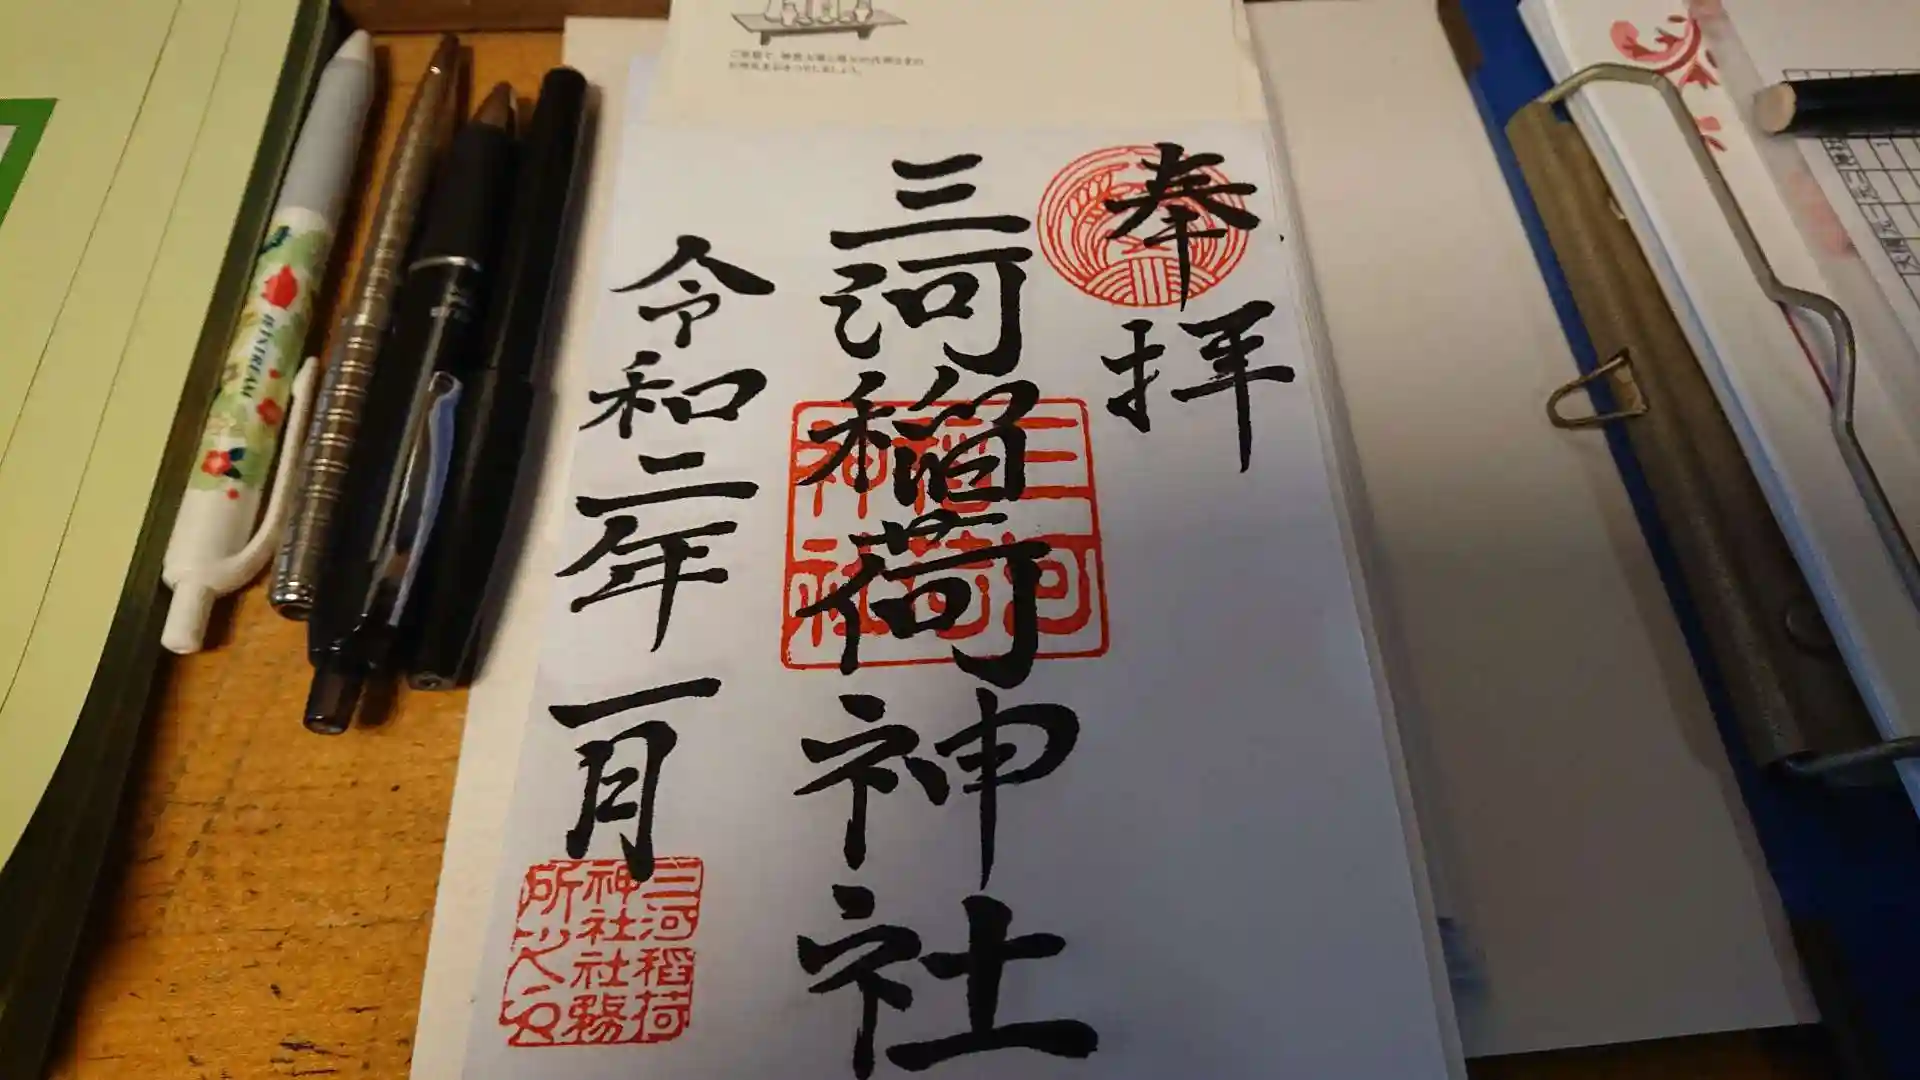 奉拝
三河稲荷神社
令和二年一月
三河
稲荷
神社
三河稲荷
神社社務
所之印
JETSTREAM